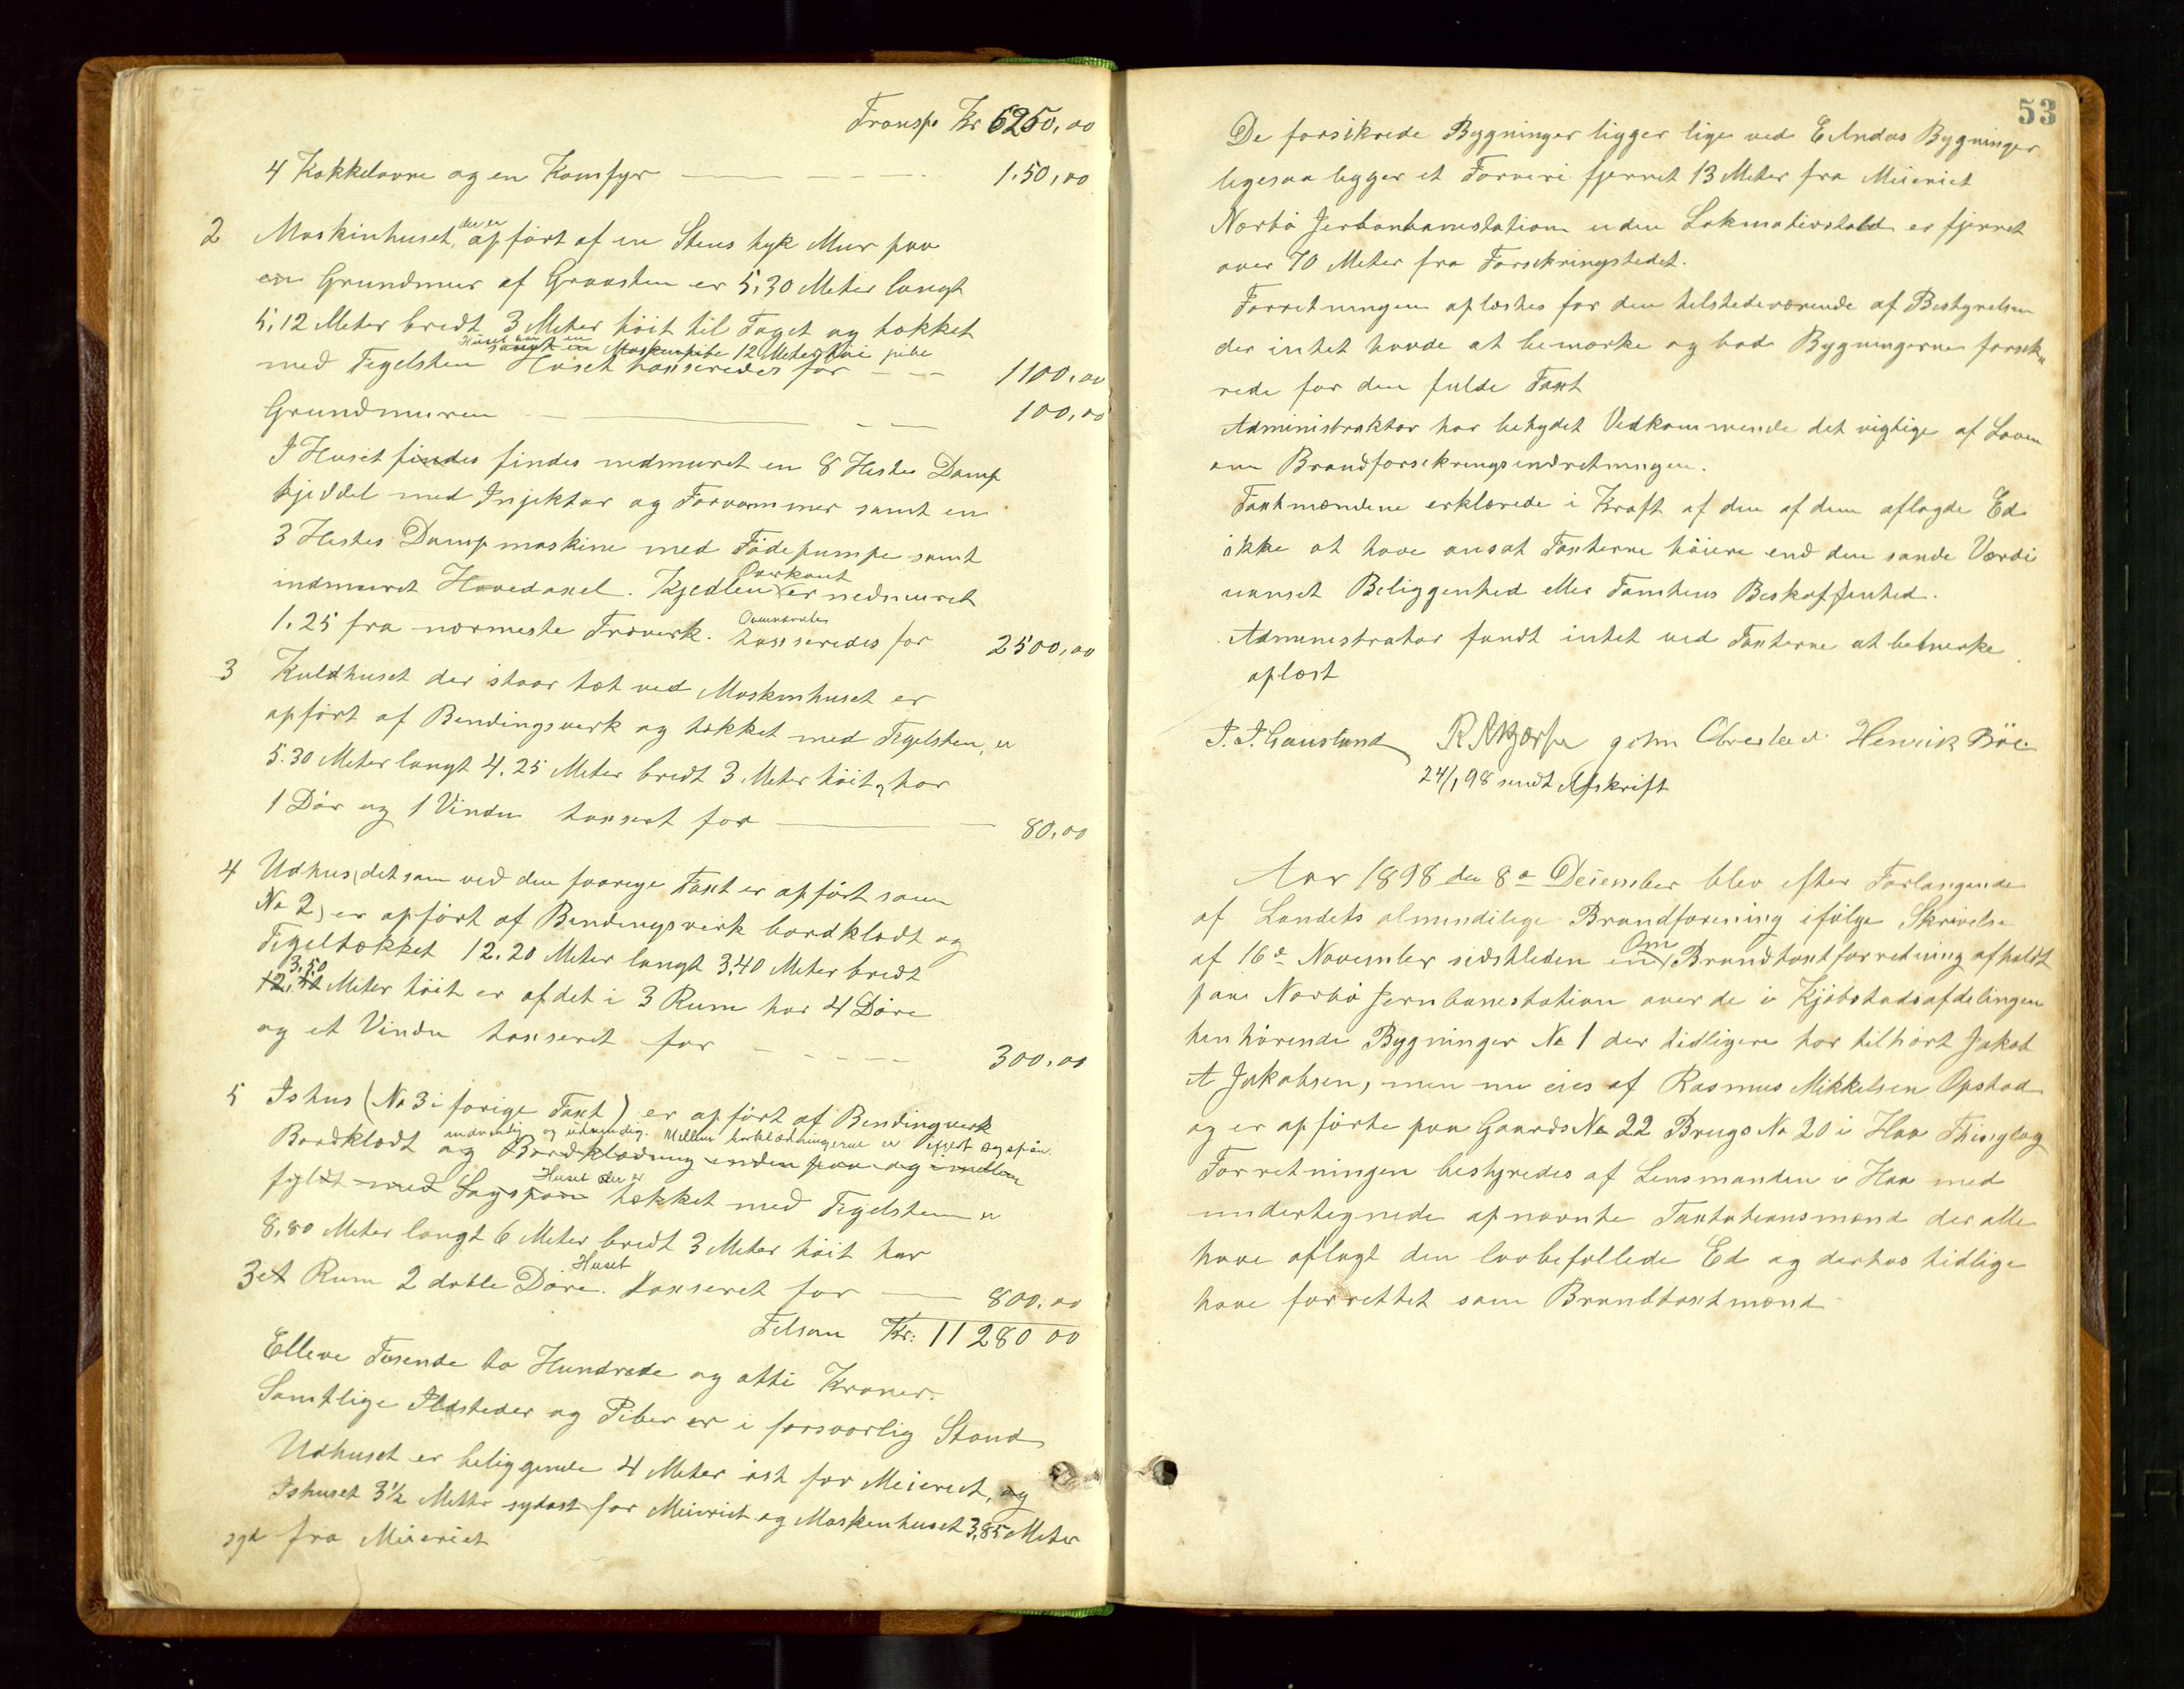 Transp. Kr 6250,00
4 Kakkelovne og en Komfyr 1.50,00
2 Maskinhuset, der er opført af en Stens tyk Mur paa
en Grundmur af Graasten er 5,30 Meter langt
5,12 Meter bredt, 3 Meter höit til Taget og tækket
Huset har en samt en Maskinpibe 12 Meter höi pibe
med Tegelsten Huset taxseredes for 1100,00
Grundmuren 100,00
I Huset findes findes nedmuret en 8 Hestes Damp
kjeddel med Injektor og Forvarmmer samt en
3 Hestes Dampmaskine med Födepumpe samt
indmuret Hovedaxel. Kjedlens Overkant er nedmuret
1.25 fra nærmeste Træverk. Ovennævnte taxseredes for 2500,00
3 Kuldhuset der staar tæt ved Maskinhuset er
opført af Bendingsverk og tækket med Tegelsten, er
5.30 Meter langt 4.25 Meter bredt 3 Meter höit, har
1 Dör og 1 Vindu taxsert for 80,00
4 Udhus, (det som ved den forrige Taxt er opført som
No 2) er opført af Bindingsverk bordklædt og
Tegeltækket 12.20 Meter langt 3,40 Meter bredt
3,50 Meter höit er afdet i 3 Rum har 4 Döre
og et Vindu taxseret for 300,00
5 Ishus (No 3 i forige Taxt) er opført af Bendingverk
Bordklædt indvendig og udvendig. Mellem bordklædningerne er isyert sagspån.
og Bordklædning enden paa og imellem
fyldt med Sagspaan Huset der er tækket med Tegelsten er
8,80 Meter langt 6 Meter bredt 3 Meter höit har
3et Rum 2 doble Döre. Huset taxseret for 800,00
Tilsam Kr: 11280 00
Elleve Tusende to Hundrede og otti Kroner.
Samtlige Ildsteder og Piber er i forsvarlig Stand
Udhuset er beliggende 4 Meter öst for Meieriet, og
Ishuset 3½ Mettr sydøst for Meieriet og Maskenhuset 3,85 Meter
syd fra Meieriet
53
De forsikrede Bygninger ligger lige ved E Andas Bygninger
ligesaa ligger et Farveri fjernet 13 Meter fra Meieriet
Nærbö Jerbanbanestation uden Lokmotivstald er fjernet
over 70 Meter fra Forsikringstedet.
Forretningen oplæstes for den tilstedeværende af Bestyrelsen
der intet havde at bemærke og bad Bygningerne forsik
rede for den fulde Taxt
Administraktor har betydet Vedkommende det vigtige af Loven
om Brandforsikringsindretningen.
Taxtmændene erklærede i Kraft af den af dem aflagde Ed
ikke at have ansat Taxterne höiere end den sande Værdi
uanset Beliggenhed eller Tomtens Beskaffenhed.
Administrator fandt intet ved Taxterne at bemerke
oplæst
J. J. Gausland Henrik Böe
24/1 98 sendt Afskrift
Aar 1898 den 8de Desember blev efter Forlangende
af Landets almindilige Brandforening ifölge Skrivelse
af 16de November sidstleden en Om Brandtaxtforretning afholdt
paa Nærbö Jernbanestation over de i Kjöbstadsafdelingen
henhörende Bygninger No 1 der tidligere har tilhört Jakob
A Jakobsen, men nu eies af Rasmus Mikkelsen Opstad
og er opförte paa Gaards No 22 Brugs No 20 i Haa Thinglag
Forretningen bestyredes af Lensmanden i Haa med
undertegnede opnævnte Taxtationsmænd der alle
have aflagt den lovbefallede Ed og derhos tidlige
have forrettet som Brandtaxtmænd